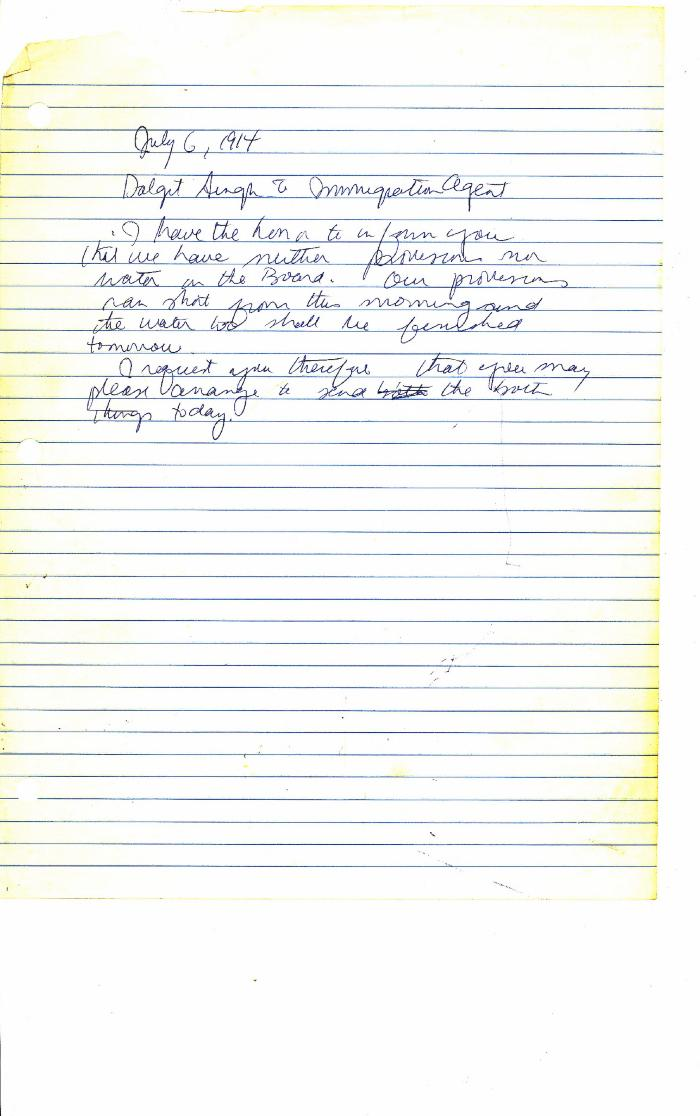 July 6, 1914
Daljit Singh to Immigration Agent
I have the honor to inform you
that we have neither provisions nor
water on the Board. Our provisions
ran short from this morning and
the water too shall be finished
tomorrow.
I request you therefore that you may
please arrange to send both the both
things today.